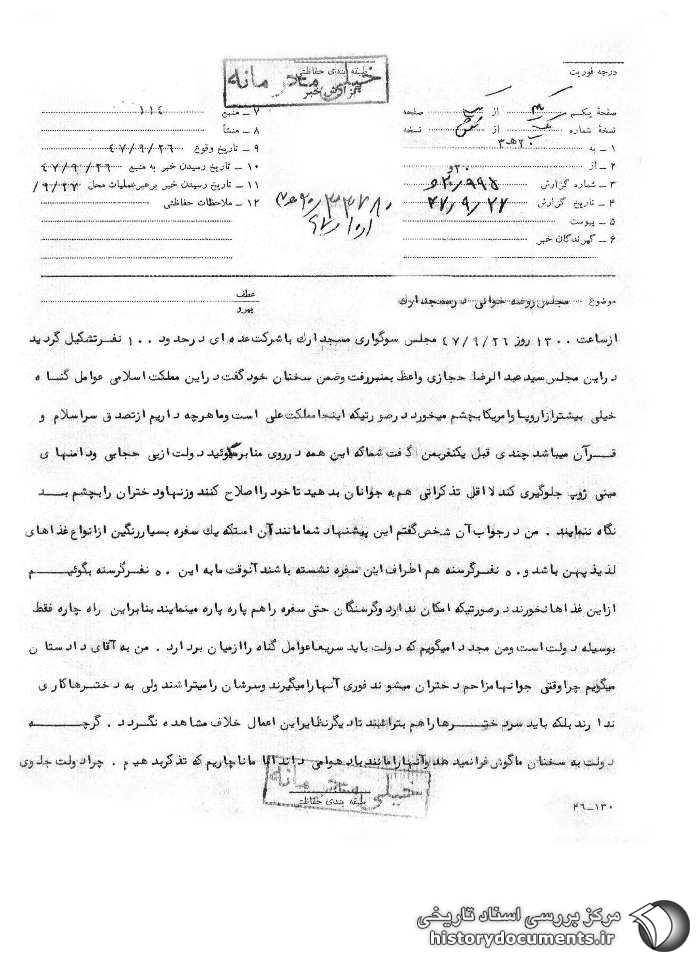 طبقه بندی حفاظتی
خیلی محرمانه
گزارش خبر
درجه فوریت
صفحهٔ یکم از صفحه
نسخهٔ شماره از نسخه
۱ ـ به ۲۰ هـ ۳
۲ ـ از ۲۰ و
۳ ـ شماره گزارش ۲۰/۹۹۵ و
۴ ـ تاریخ گزارش ۴۷/۹/۲۷
۵ ـ پیوست
۶ ـ گیرندگان خبر
۷ ـ منبع ۱۱۴
۸ ـ منشأ
۹ ـ تاریخ وقوع ۴۷/۹/۲۶
۱۰ ـ تاریخ رسیدن خبر به منبع ۴۷/۹/۲۶
۱۱ ـ تاریخ رسیدن خبر برهبر عملیات محل ۹/۲۷/
۱۲ ـ ملاحظات حفاظتی
موضوع مجلس روضه خوانی در مسجد ارك
عطف
پیرو
از ساعت ۱۳۰۰ روز ۴۷/۹/۲۶ مجلس سوگواری مسجد ارك با شرکت عده ای در حدود ۱۰۰ نفر تشکیل گردید
در این مجلس سید عبد الرضا حجازی واعظ بمنبر رفت وضمن سخنان خود گفت در این مملکت اسلامی عوامل گناه
خیلی بیشتر از اروپا وامریکا بچشم میخورد در صورتیکه اینجا مملکت علی است وما هرچه داریم از تصدق سر اسلام و
قرآن میباشد چندی قبل یکنفر بمن گفت شما که این همه در روی منابر میگوئید دولت از بی حجابی ودامنهای
مینی ژوپ جلوگیری کند لااقل تذکراتی هم به جوانان بدهید تا خود را اصلاح کنند وزنها ودختران را بچشم بد
نگاه ننمایند . من در جواب آن شخص گفتم این پیشنهاد شما مانند آن استکه یك سفره بسیار رنگین از انواع غذاهای
لذیذ پهن باشد و ۵۰ نفر گرسنه هم اطراف این سفره نشسته باشند آنوقت ما به این ۵۰ نفر گرسنه بگوئیم
از این غذاها نخورند در صورتیکه امکان ندارد وگرسنگان حتی سفره را هم پاره پاره مینمایند بنابراین راه چاره فقط
بوسیله دولت است ومن مجددا میگویم که دولت باید سریعا عوامل گناه را از میان بردارد . من به آقای دادستان
میگویم چرا وقتی جوانها مزاحم دختران میشوند فوری آنها را میگیرند وسرشان را میتراشند ولی به دخترها کاری
ندارند بلکه باید سر دخترها را هم بتراشند تا دیگر نظایر این اعمال خلاف مشاهده نگردد . گرچه
دولت به سخنان ما گوش فرا نمیدهد وآنها را مانند باد هوا می داند اما ما ناچاریم که تذکر بدهیم . چرا دولت جلوی
خیلی محرمانه
طبقه بندی حفاظتی
۴۶ــ۱۳۰
مرکز بررسی اسناد تاریخی
historydocuments.ir